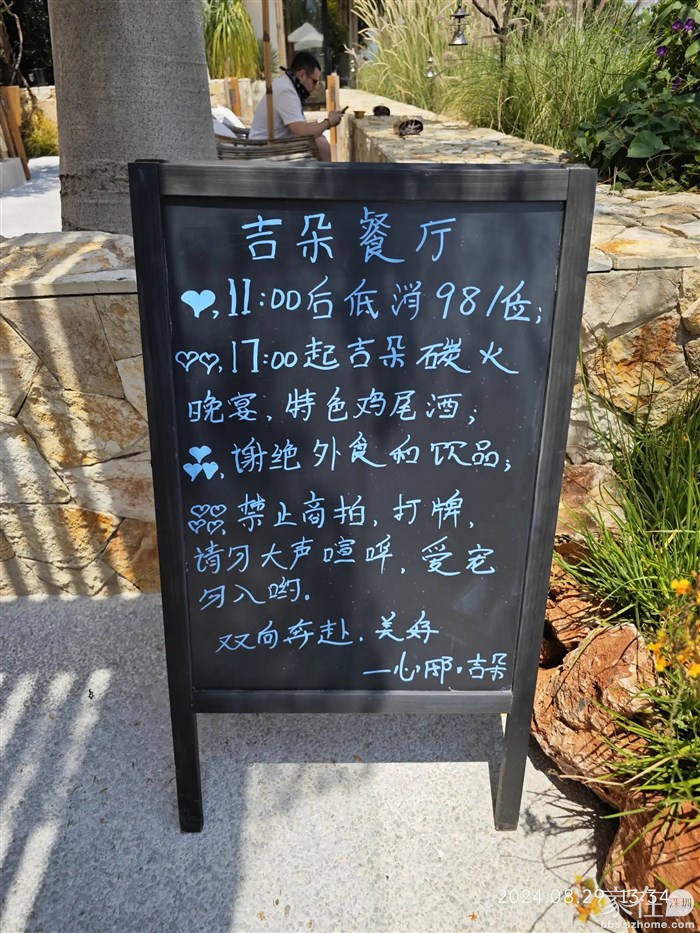 吉朵餐厅
♥，11:00后低消98/位；
♥♥，17:00起吉朵碳火
晚宴，特色鸡尾酒；
♥♥♥，谢绝外食和饮品；
♥♥♥♥，禁止商拍，打牌，
请勿大声喧哗，爱宠
勿入哟。
双向奔赴，美好
一心邸·吉朵
2024.08.29 13:34
家在深圳
bbs.szhome.com